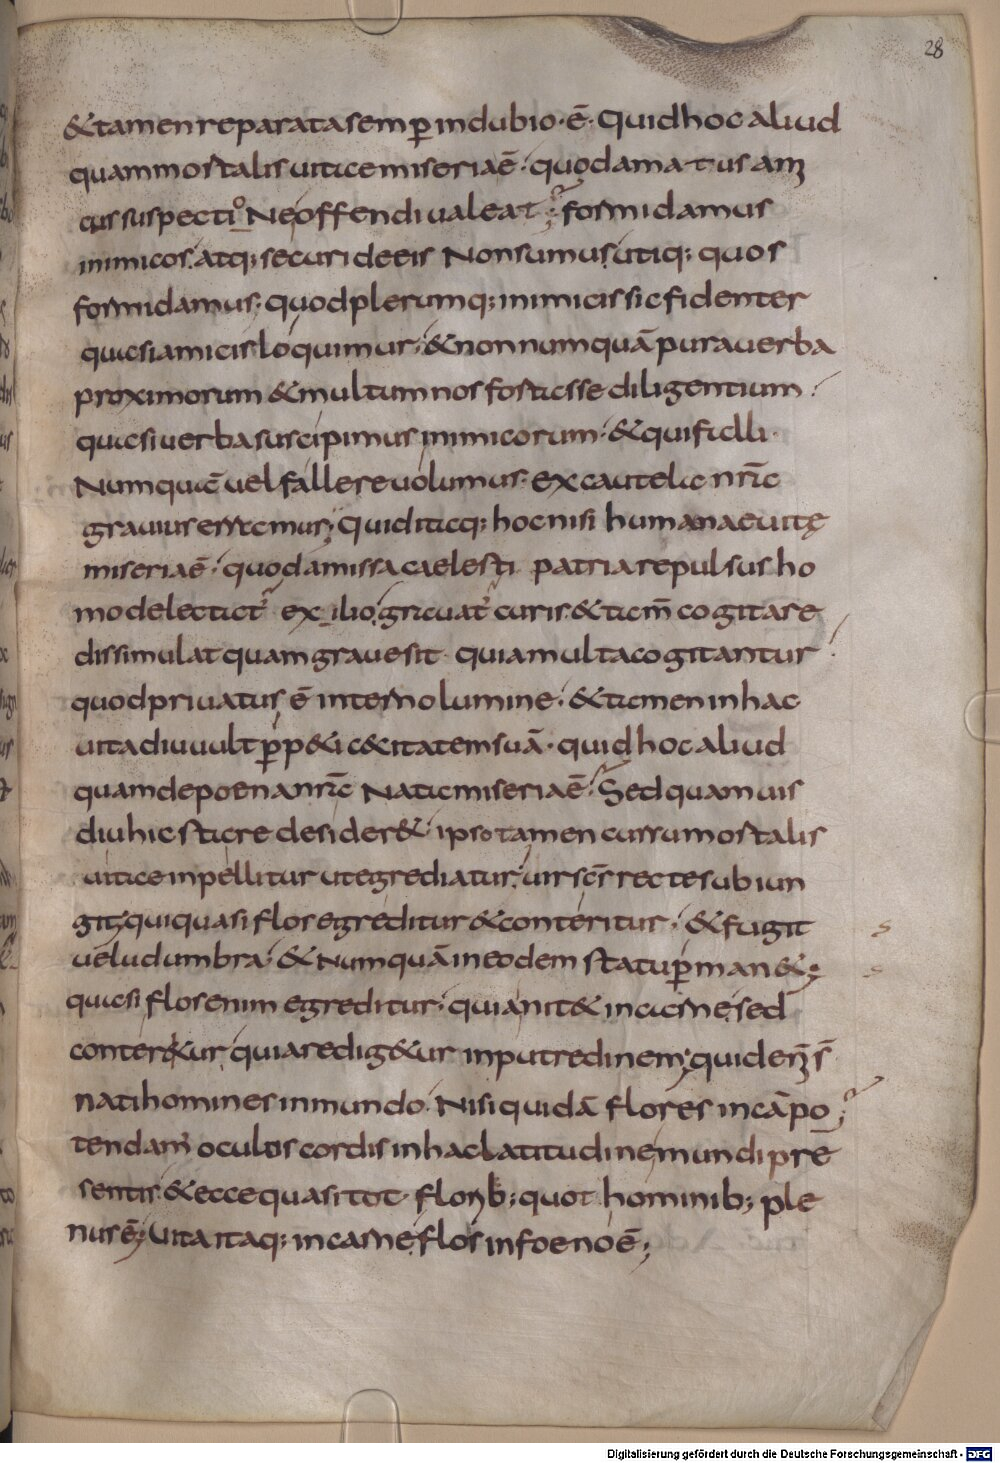 28
&tamen reparata semp̄ in dubio· ē· Quid hoc aliud
quam mortalis uitae miseria ē· quod amatus am
cus suspectio Ne offendi ualeat; formidamus
inimicos. atq; securi de eis Non sumus. utiq; quos
formidamus; quod plerumq; inimicis sic fidenter
quasi amicis loquimur· & non numquā pura uerba
proximorum & multum nos fortasse diligentium·
quasi uerba suscipimus inimicorum· & qui falli·
Numquā uel fallere uolumus· ex cautela nr̄a
grauius erramus; Quid itaq; hoc nisi humanae uitę
miseria ē· quod amissa caelesti patria repulsus ho
mo delectat' exilio. grauat' curis. & tam̄ cogitare
dissimulat quam graue sit· quia multa cogitantur·
quod priuatus ē interno lumine· & tamen in hac
uita diu uult p̄p&i c&itatem suā· quid hoc aliud
quam de poena nr̄a Nata miseria ē· Sed quamuis
diu hic stare desider&· ipso tamen cursu mortalis
uitae inpellitur ut egrediatur; uir sc̄s recte subiun
git; qui quasi flos egreditur & conteritur· & fugit
uelud umbra· & Numquā in eodem statu p̄man&;
quasi flos enim egreditur· quia nit& in carne. sed
conter&ur, quia redig&ur in putredinem; quid en̄ s̄
nati homines in mundo· Nisi quidā flores in cāpo;
tendam' oculos cordis in hac latitudinem mundi pre
sentis. & ecce quasi tot· florib; quot hominib; ple
nus ē; Uita itaq; in carne. flos in foeno ē;
Digitalisierung gefördert durch die Deutsche Forschungsgemeinschaft - DFG